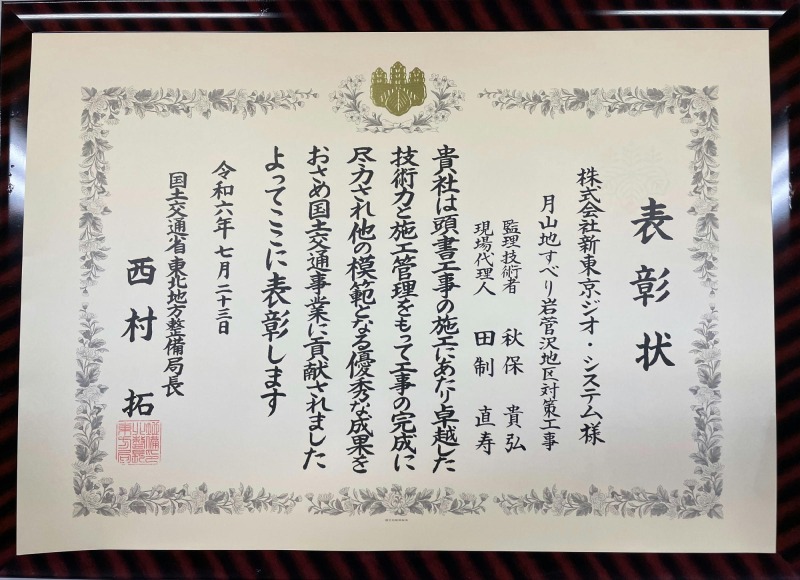 表彰状
株式会社新東京ジオ・システム様
月山地すべり岩菅沢地区対策工事
監理技術者 秋保貴弘
現場代理人 田制直寿
貴社は頭書工事の施工にあたり卓越した
技術力と施工管理をもって工事の完成に
尽力され他の模範となる優秀な成果を
おさめ国土交通事業に貢献されました
よってここに表彰します
令和六年七月二十三日
国土交通省東北地方整備局長
西村拓